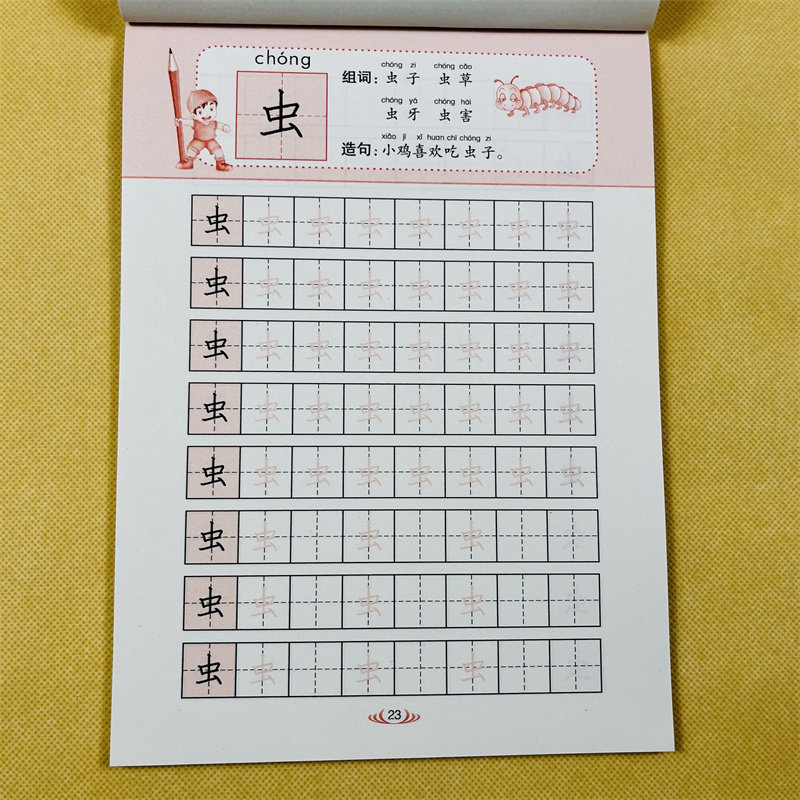 chóng
虫
chóng zi chóng cǎo
组词：虫子 虫草
chóng yá chóng hài
虫牙 虫害
xiǎo jī xǐ huan chī chóng zi
造句：小鸡喜欢吃虫子。
虫 虫 虫 虫 虫 虫 虫 虫
虫 虫 虫 虫 虫 虫 虫 虫
虫 虫 虫 虫 虫 虫 虫 虫
虫 虫 虫 虫 虫 虫 虫 虫
虫 虫 虫 虫 虫 虫 虫 虫
虫 虫 虫 虫
虫 虫 虫 虫
虫 虫 虫 虫
23